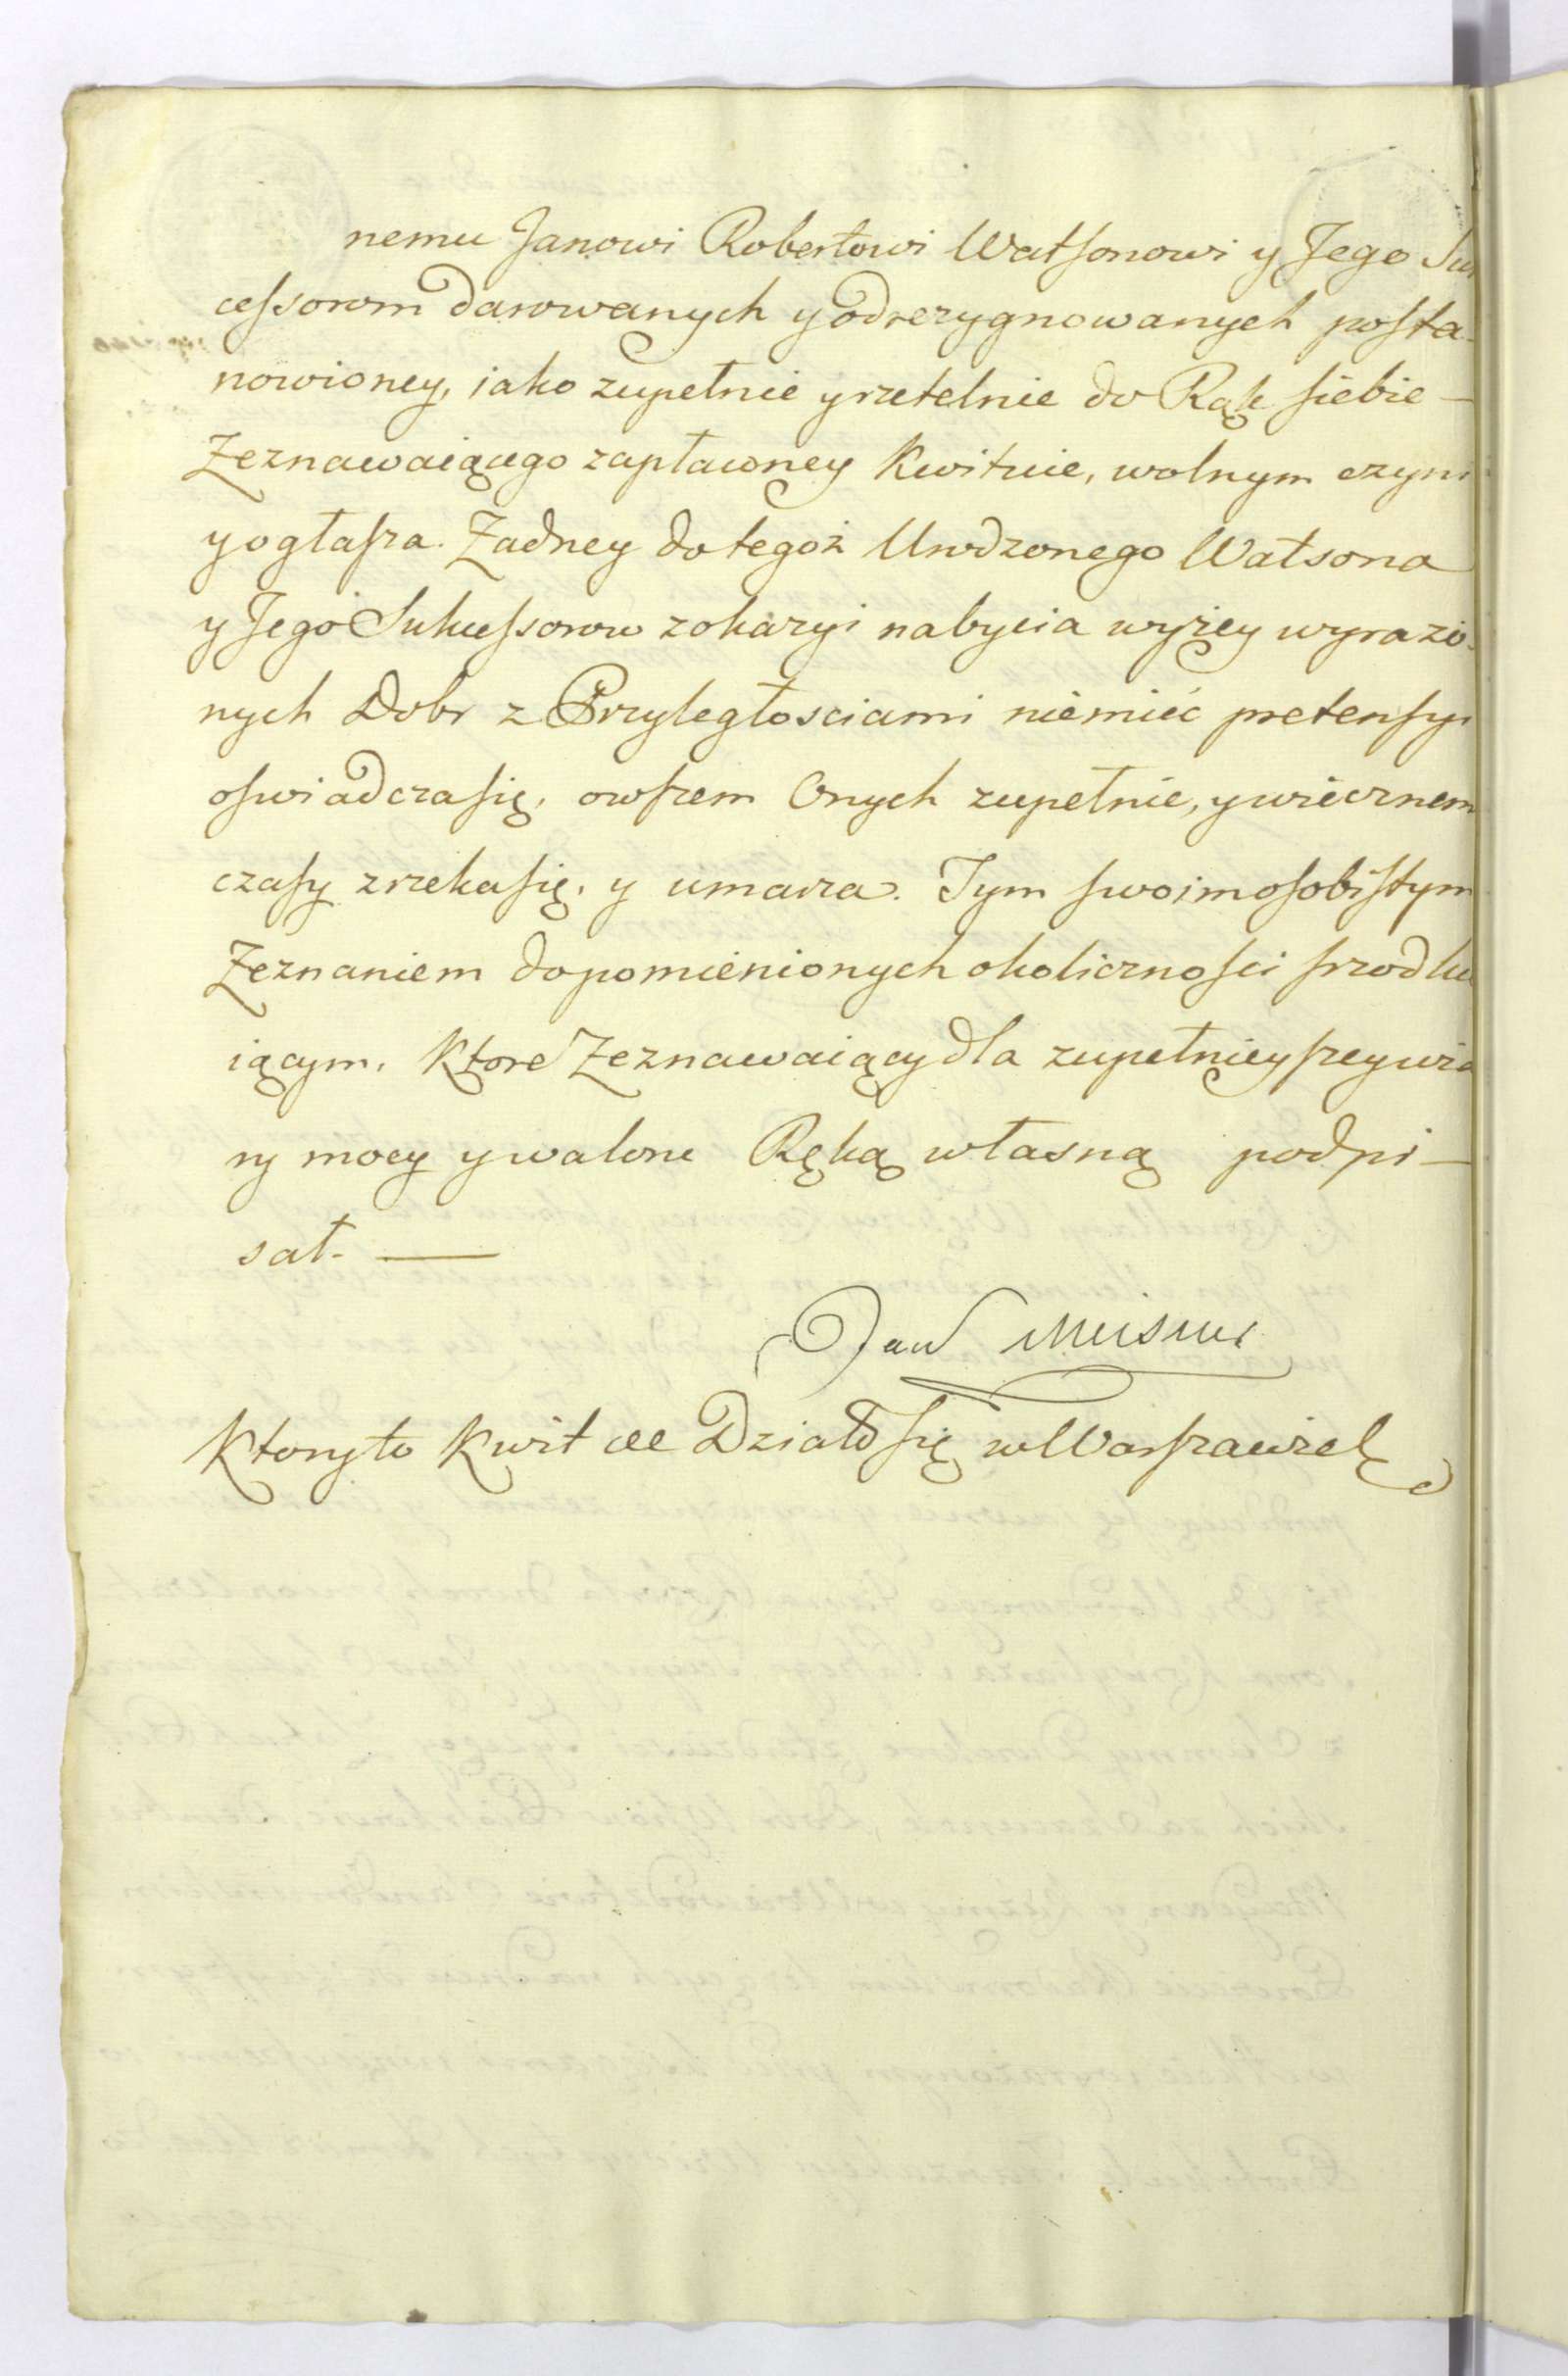 nemu Janowi Robertowi Watsonowi y Jego Suk
cessorom darowanych y odrezygnowanych posta-
nowioney, iako zupełnie y rzetelnie do Rąk siebie —
Zeznawaiącego zapłaconey Kwituie, wolnym czyni
y ogłasza. Żadney do tegoż Urodzonego Watsona
y Jego Sukcessorow z okazyi nabycia wyżey wyrażo-
nych Dobr z Przyległosciami niemieć pretensyi
oswiadcza się, owszem Onych zupełnie, y wiecznemi
czasy zrzeka się, y umarza. Tym swoim osobistym
Zeznaniem do pomienionych okoliczności
iącym. Ktore Zeznawaiący dla zupełniey szey wia
ry mocy y waloru Ręką własną podpi —
sał. —
Jan
Ktory to Kwit Działo się w Warszawie